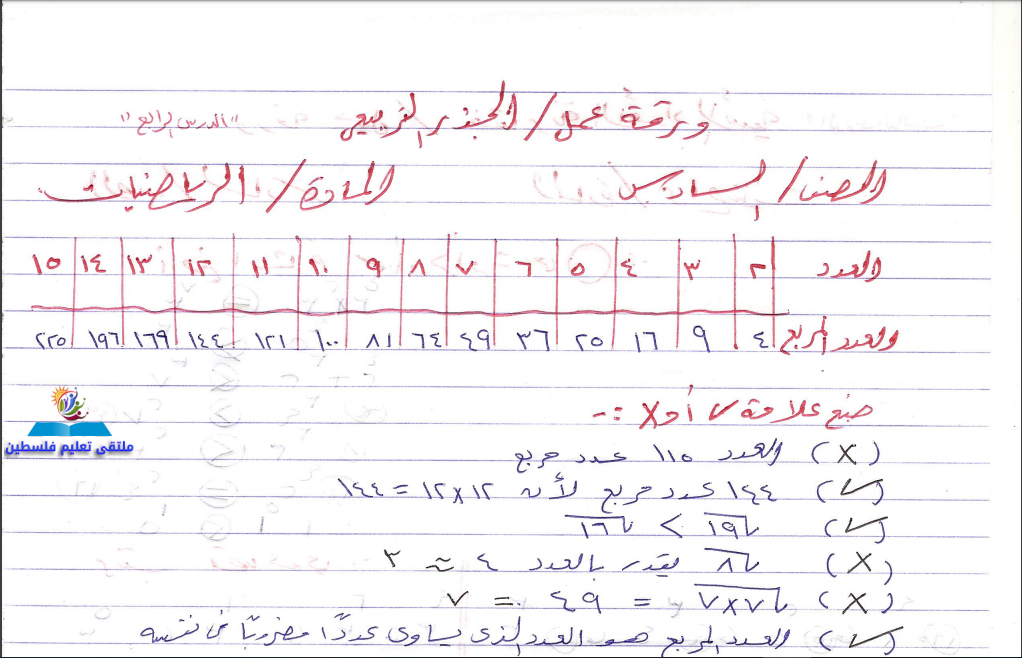 ورقة عمل / الجذر التربيعي "الدرس الرابع"
الصف / السادس المادة / الرياضيات
العدد ٢ ٣ ٤ ٥ ٦ ٧ ٨ ٩ ١٠ ١١ ١٢ ١٣ ١٤ ١٥
والعدد المربع ٤ ٩ ١٦ ٢٥ ٣٦ ٤٩ ٦٤ ٨١ ١٠٠ ١٢١ ١٤٤ ١٦٩ ١٩٦ ٢٢٥
ضع علامة √ أو X :-
(X) العدد ١١٥ عدد مربع
(√) ١٤٤ عدد مربع لأن ١٢×١٢ = ١٤٤
(√) √١٩ > √١٦
(X) √٨ يقدر بالعدد ٤ ≈ ٣
(X) √٧×٧ = ٤٩ = ٧
(√) العدد المربع هو العدد الذي يساوي عددًا مضروبًا في نفسه
ملتقى تعليم فلسطين